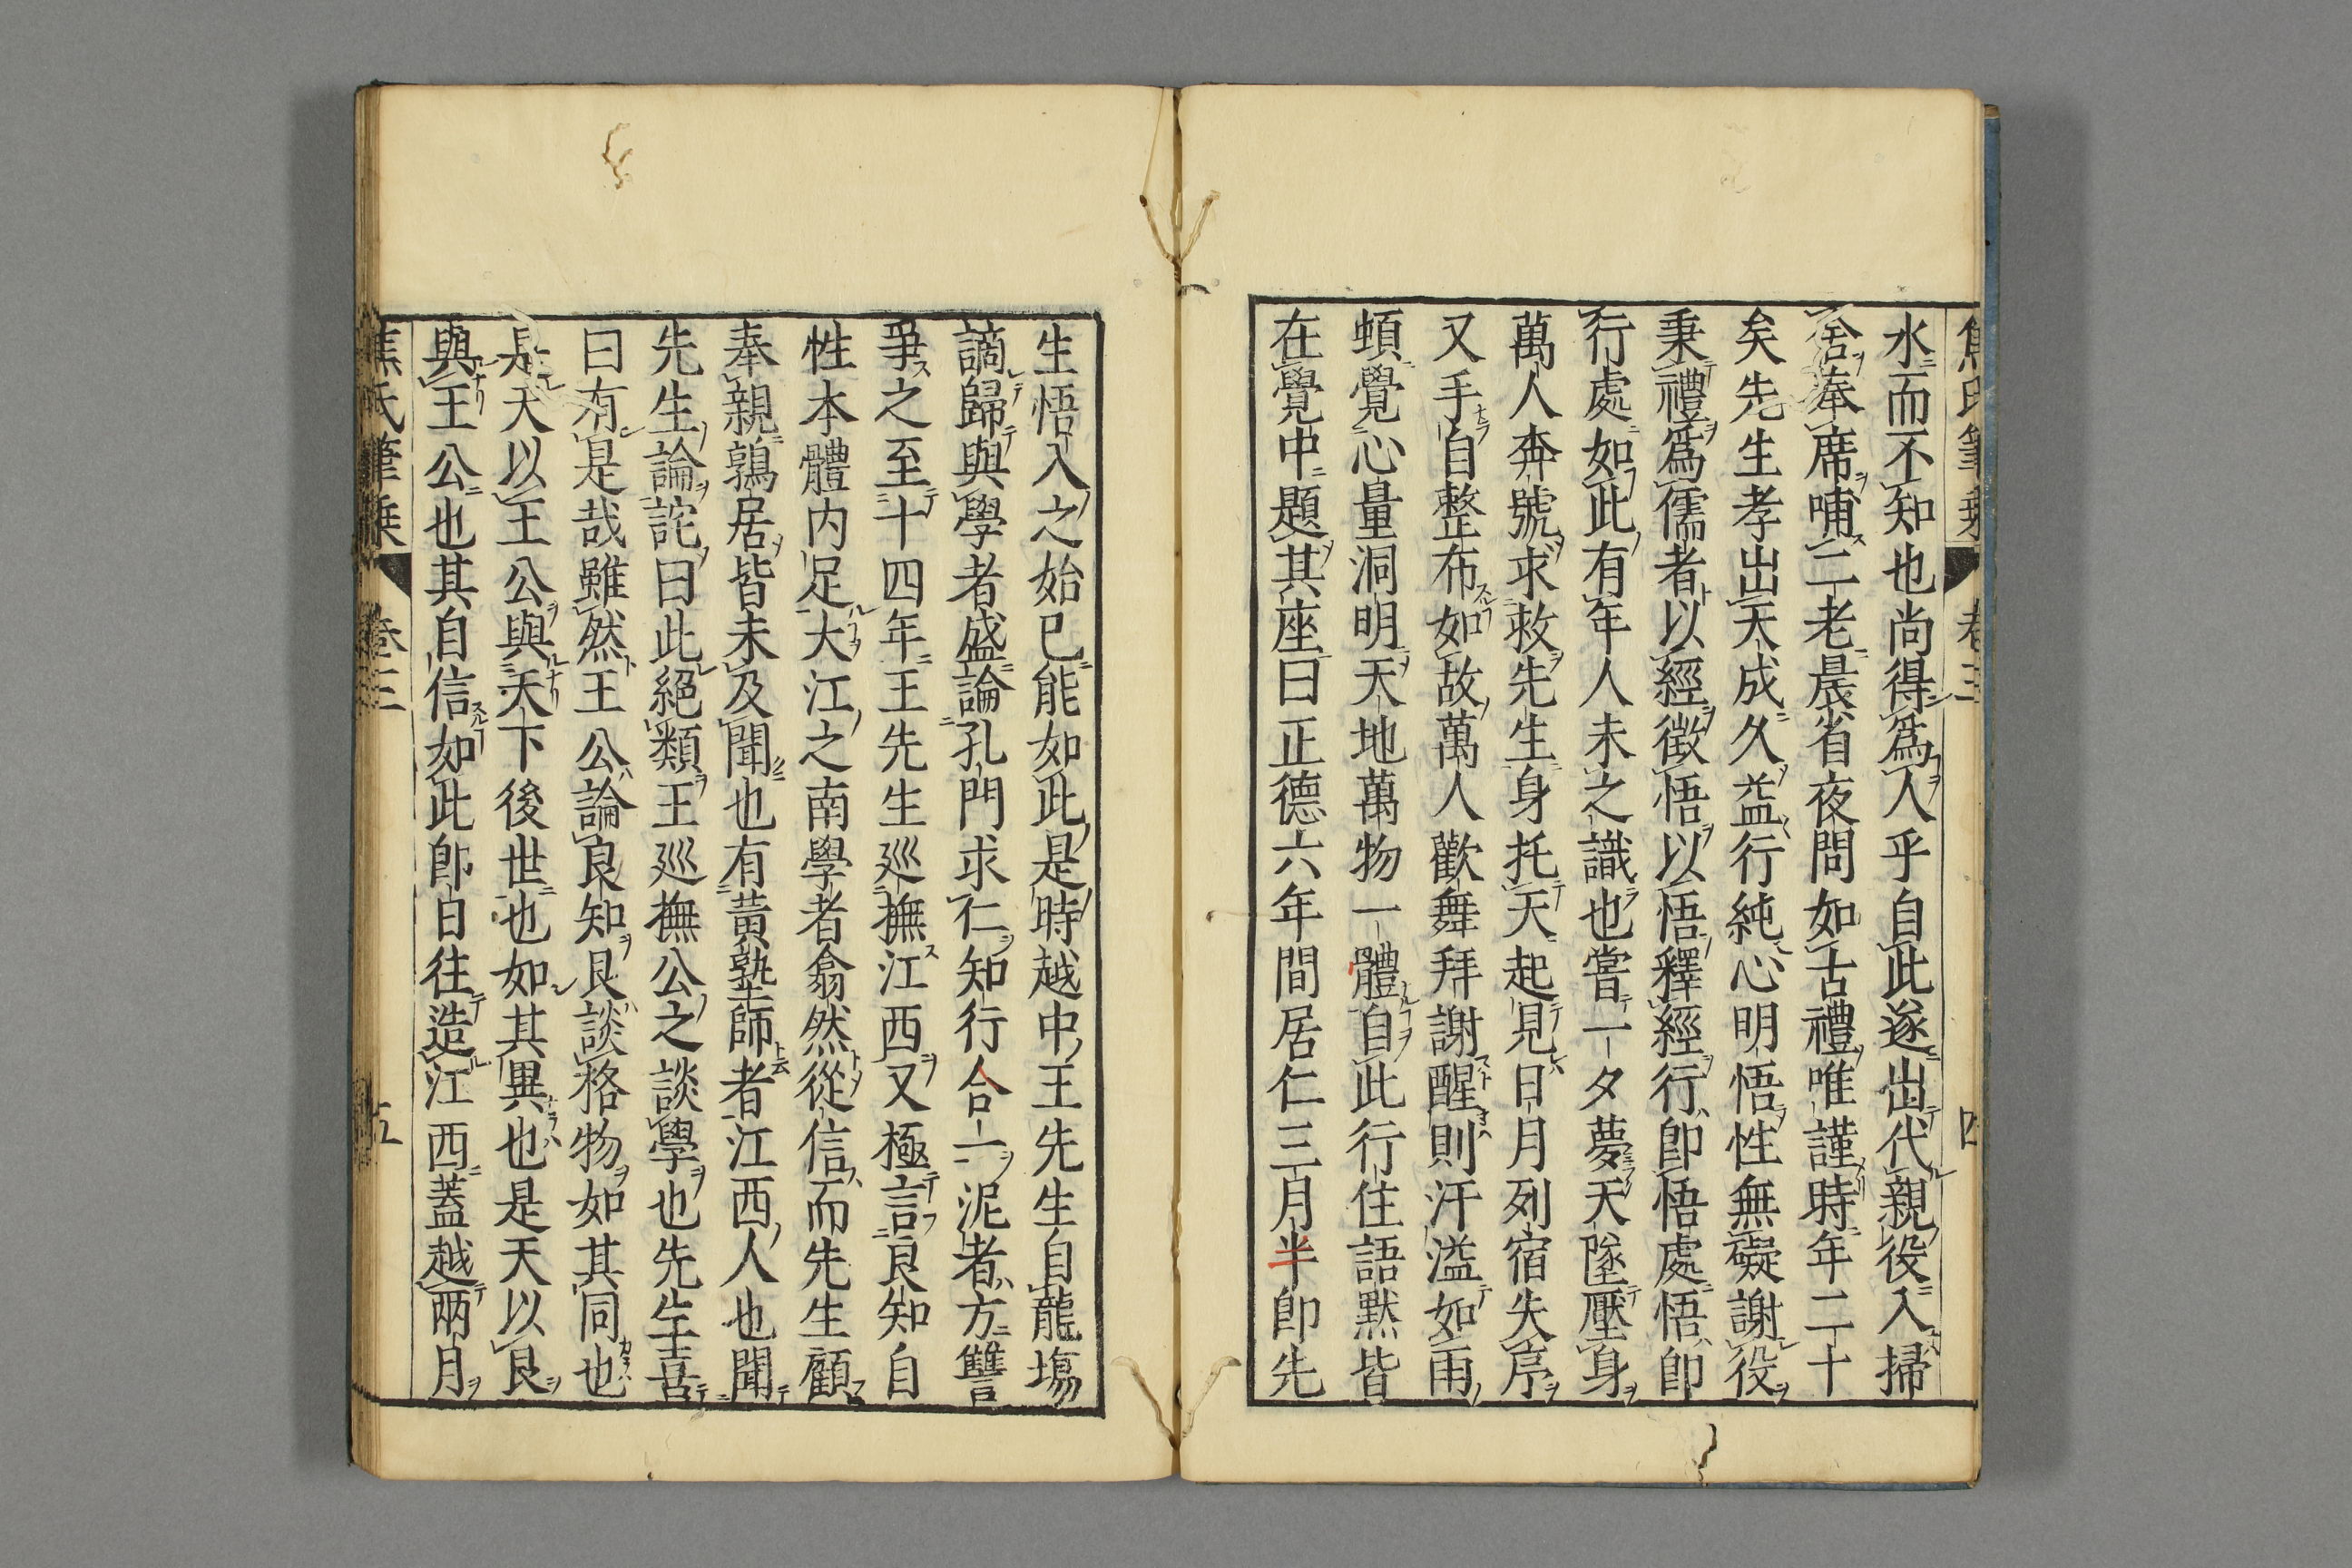 焦氏筆乗 卷三 四
水而不知也尚得爲人乎自此遂出代親役入掃
舍奉席哺二老晨省夜問如古禮唯謹時年二十
矣先生孝出天成久益行純心明悟性無礙謝役
秉禮爲儒者以經徵悟以悟釋經行卽悟處悟卽
行處如此有年人未之識也嘗一夕夢天墜壓身
萬人奔號求救先生身托天起見日月列宿失序
又手自整布如故萬人歡舞拜謝醒則汗溢如雨
頓覺心量洞明天地萬物一體自此行住語默皆
在覺中題其座曰正德六年間居仁三月半卽先
生悟入之始已能如此是時越中王先生自龍場
謫歸與學者盛論孔門求仁知行合一泥者方讐
爭之至十四年王先生巡撫江西又極言良知自
性本體内足大江之南學者翕然從信而先生顧
奉親鶉居皆未及聞也有黄塾師者江西人也聞
先生論詫曰此絕類王巡撫公之談學也先生喜
曰有是哉雖然王公論良知艮談格物如其同也
是天以王公與天下後世也如其異也是天以艮
與王公也其自信如此卽日往造江西蓋越兩月
焦氏筆乗 卷三 五